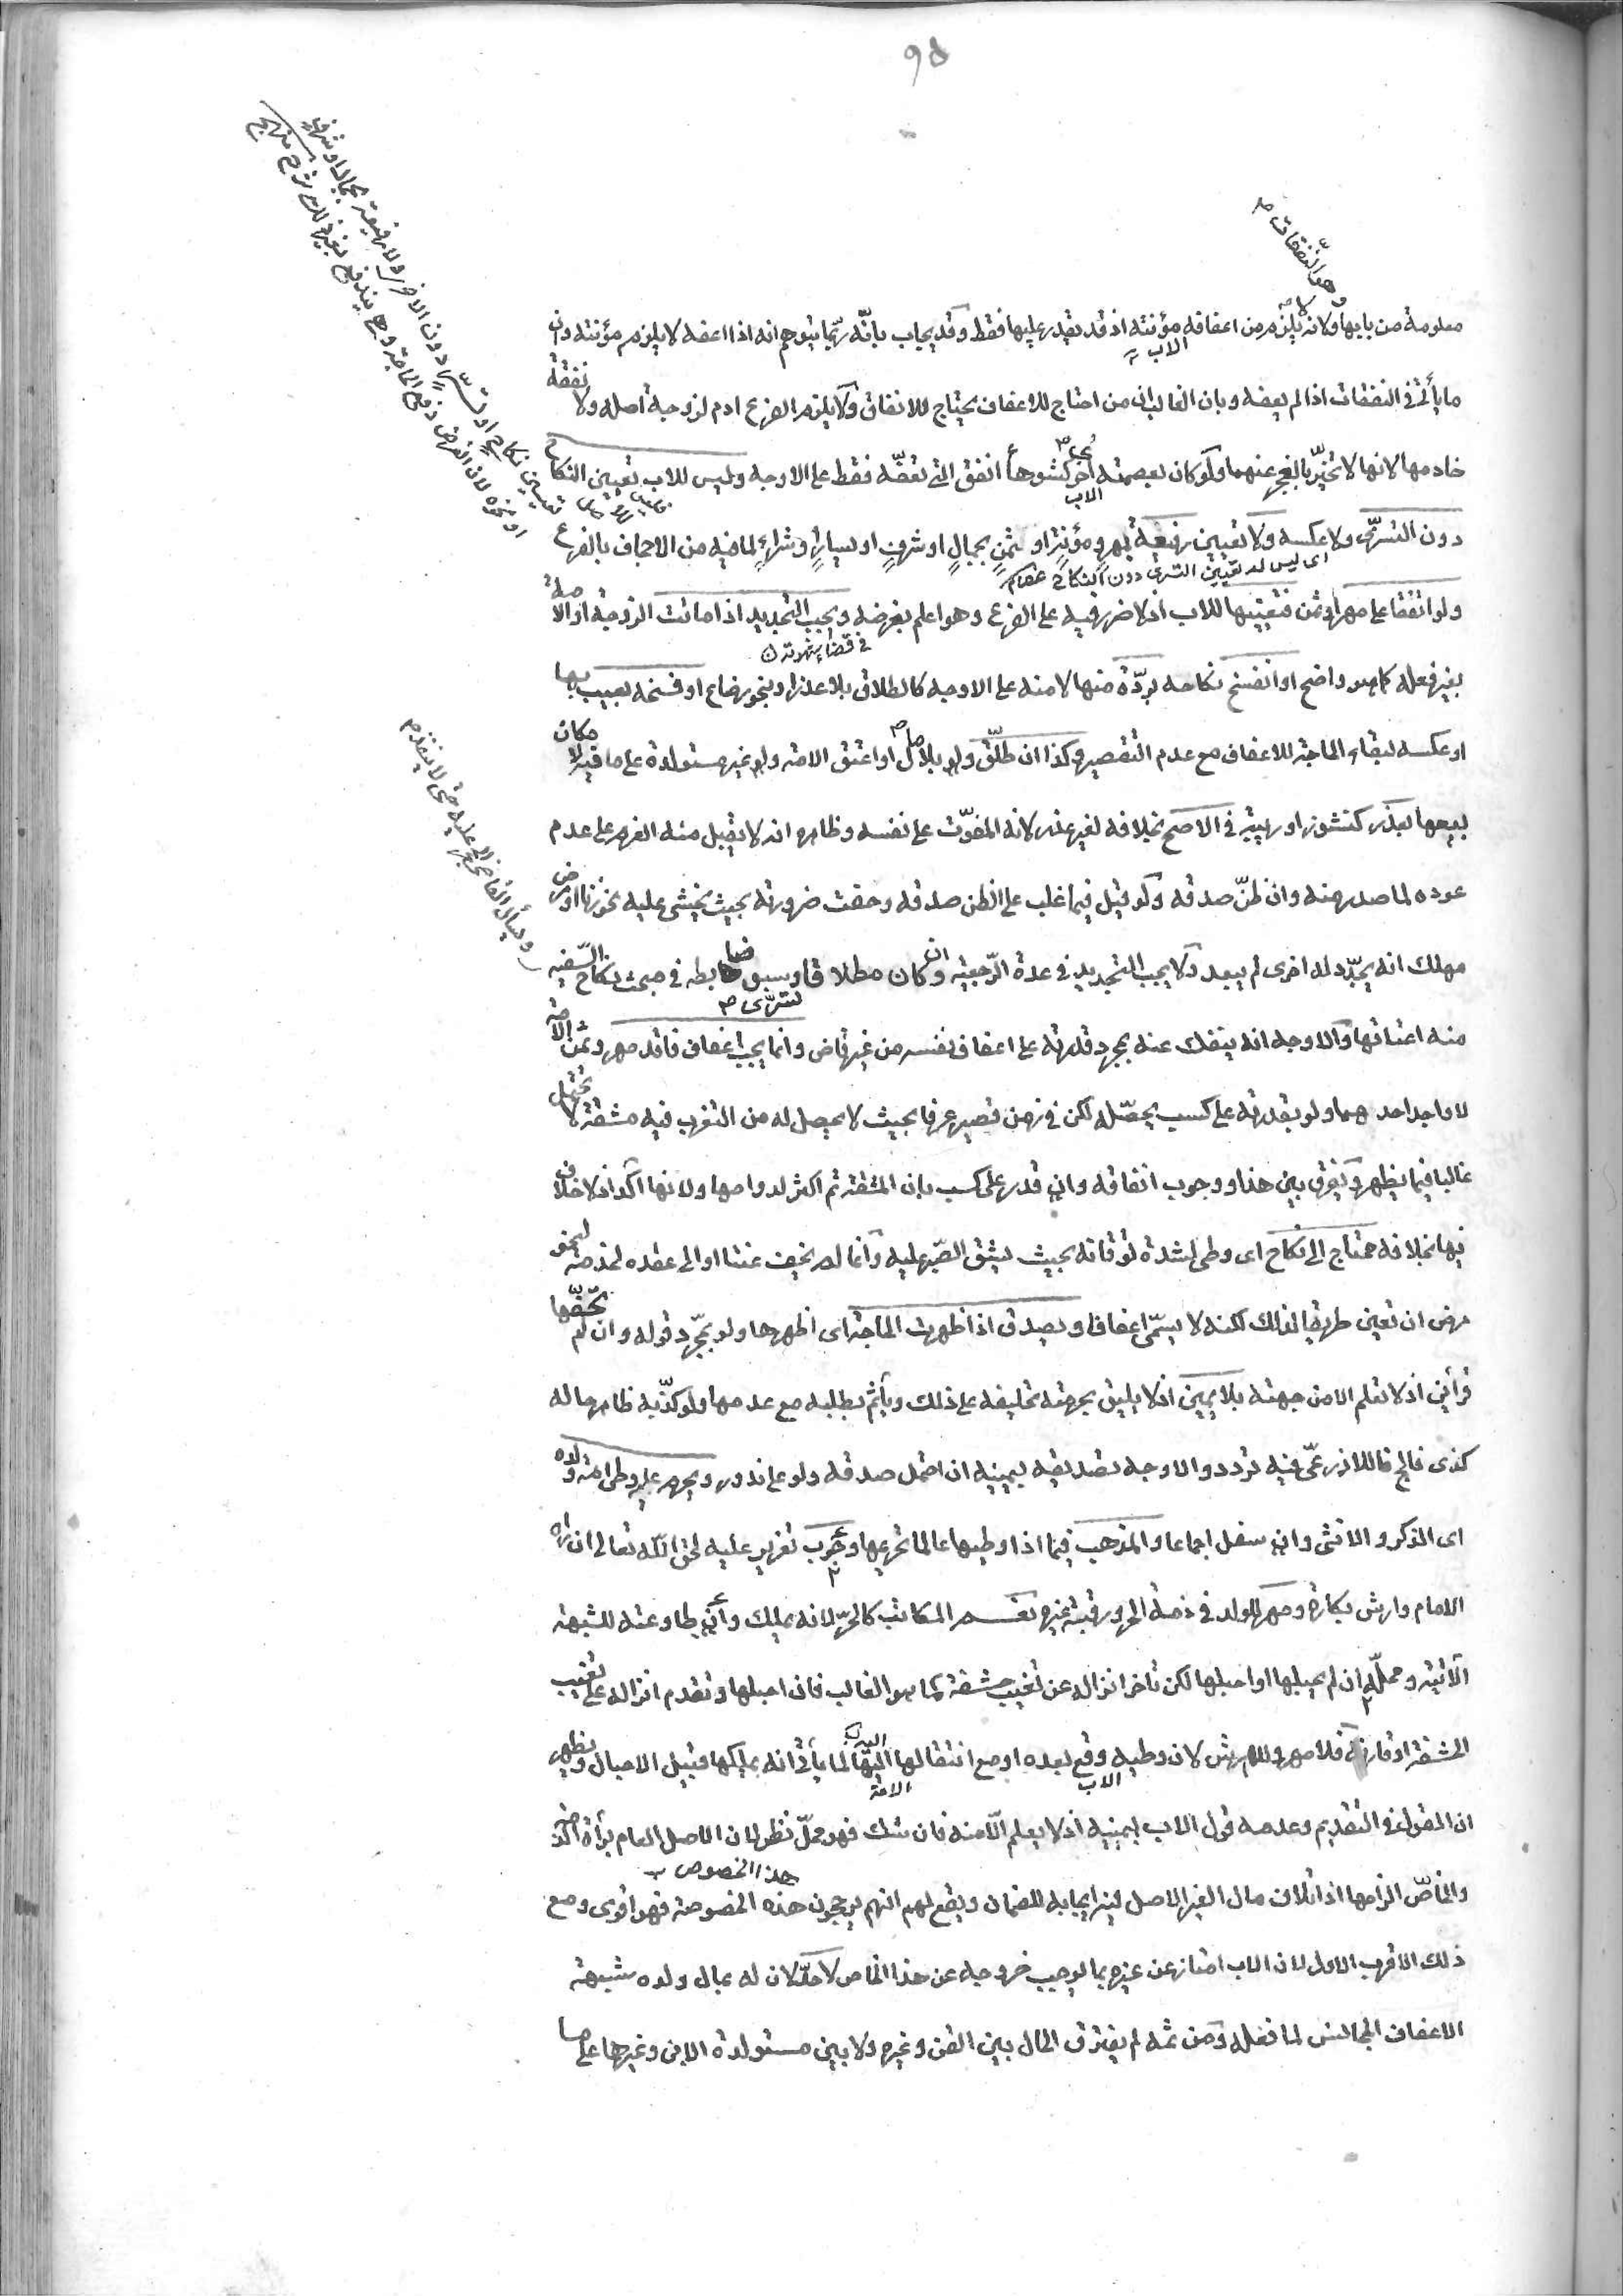 ٩٥
وهو النفقات
معلومة من بابها ولانه لا يلزم من اعفافه مؤنته اذ قد يقدر عليها فقط وقد يجاب بانّه ربّما يتوهم انه اذا اعفه لا يلزم مؤنته وان
الاب
ما يأتى في النفقات اذا لم يعفه وبان الغالب ان من احتاج للاعفاف يحتاج للانفاق ولا يلزم الفرع ادم لزوجة اصله ولا نفقة
خادمها لانها لا تتخيّر بالعجز عنهما ولو كان بعصمته اخر كشوهاء انفق التى تعفّه فقط على الاوجه وليس للاب تعيين النكاح
الاب
دون التسرّى ولا عكسه ولا تعيين رفيعة بمهر ومؤنة او ثمن بجمال او شرف او يسار وشراء لما فيه من الاجحاف بالفرع
اى ليس له تعيين التسرى دون النكاح
ولو اتفقا على مهر او ثمن فتعيينها للاب اذ لا ضرر فيه على الفرع وهو اعلم بغرضه ويجب التجديد اذا ماتت الزوجة او الامة
في قضاء شهوته
بغير فعله كما هو واضح او انفسخ نكاحه بردّة منها لا منه على الاوجه كالطلاق بلا عذر او بنحو رضاع او فسخه بعيب بها
او عكسه لبقاء الحاجة للاعفاف مع عدم التقصير وكذا ان طلّق ولو بلا مال او اعتق الامة ولو غير مستولدة على ما قيل لامكان
بيعها بعذر كنشوز او ريبة في الاصح بخلافه لغير عذر لانه المفوّت على نفسه وظاهره انه لا يقبل منه العزم على عدم
عوده لما صدر منه وان ظنّ صدقه ولو قيل فيما غلب على الظن صدقه وحقت ضرورته بحيث يخشى عليه نحو زنا او مرض
مهلك انه يجدّد له اخرى لم يبعد ولا يجب التجديد في عدة الرّجعية وان كان مطلاقا وسبق ضابطه في مبحث نكاح السّفيه
لتسرّى
منه اعتاقها والاوجه انه ينفك عنه بمجرد قدرته على اعفاف نفسه من غير قاض وانما يجب اعفاف فاقد مهر وثمن الامة
لا واجد احدهما ولو بقدرته على كسب يحصّله لكن في زمن قصير عرفا بحيث لا يحصل له من التعزب فيه مشقة لا تحتمل
غالبا فيما يظهر ويفرق بين هذا ووجوب انفاقه وان قدر على كسب بان المشقة ثم اكثر لدوامها ولانها آكد اذ لا خلاف
فيها بخلافه محتاج الى نكاح اى وطى لشدة توقانه بحيث يشق الصّبر عليه وان لم يخف عنتا او الى عقده لخدمة لنحو
مرض ان تعين طريقا لذلك لكنه لا يسمّى اعفافا ويصدق اذا ظهرت الحاجة اى اظهرها ولو بمجّرد قوله وان لم تحفّها
قرائن اذ لا تعلم الا من جهته بلا يمين اذ لا يليق بحرمته تحليفه على ذلك ويأثم بطلبه مع عدمها ولو كذّبه ظاهر حاله
كذى فالج قال الاذرعىّ فيه تردد والاوجه تصديقه بيمينه ان احتمل صدقه ولو على ندور ويحرم عليه وطى امة ولده
اى الذكر والانثى وان سفل اجماعا والمذهب فيما اذا وطيها عالما تحريمها وجوب تعزير عليه لحق اللّه تعالى ان راه
الامام وارش بكارة ومهر للولد في ذمة الحر ورقبة غيره نعم المكاتب كالحرّ لانه يملك وان طاوعته للشبهة
الآتية ومحلّه ان لم يحبلها او احبلها لكن تأخر انزاله عن تغييب حشفة كما هو الغالب فان احبلها وتقدم انزاله على تغييب
الحشفة او قارنه فلا مهر ولا ارش لان وطيه وقع بعده او مع انتقالها اليه لما يأتى انه يملكها قبيل الاحبال ويظهر
الاب
الامة
ان القول في التقديم وعدمه قول الاب بيمينه اذ لا يعلم الّا منه فان شك فهو محلّ نظر لان الاصل العام براءة الذمة
هذا الخصوص
والخاصّ الزامها اذ اتلاف مال الغير الاصل فيه ايجابه للضمان ويقع لهم انهم يرجحون هذه الخصوصة فهو اقوى ومع
ذلك الاقرب الاول لان الاب امتاز عن غيره بما يوجب خروجه عن هذا الخاص لا حدّ لان له بمال ولده شبهة
الاعفاف المجانس لما فعله ومن ثمه لم يفترق الحال بين القن وغيره ولا بين مستولدة الابن وغيرها على ما